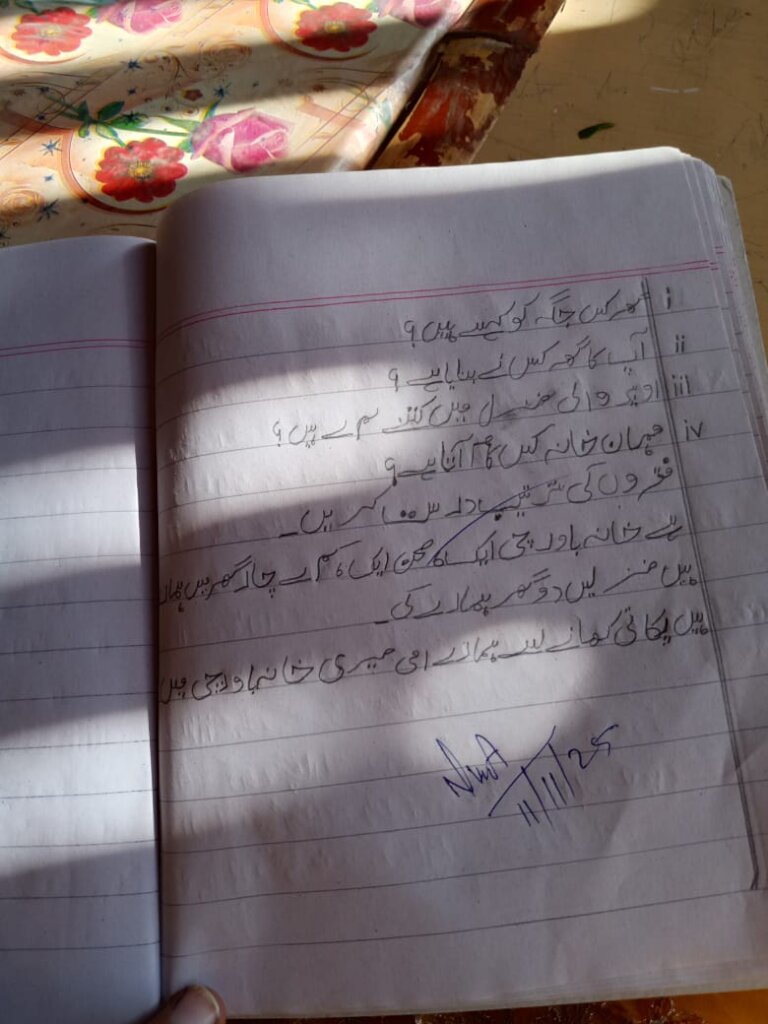 i گھر کس جگہ کو کہتے ہیں؟
ii آپ کا گھر کس نے بنایا ہے؟
iii اوپر والی منزل میں کتنے کمرے ہیں؟
iv مہمان خانہ کس کام آتا ہے؟
فقروں کی ترتیب درست کریں۔
ہے خانہ باورچی ایک صحن ایک کمرے چار گھر میں ہمارے
ہیں منزلیں دو گھر ہمارے کی۔
ہیں پکاتی کھانے لیے ہمارے امی میری خانہ باورچی میں
11/11/25